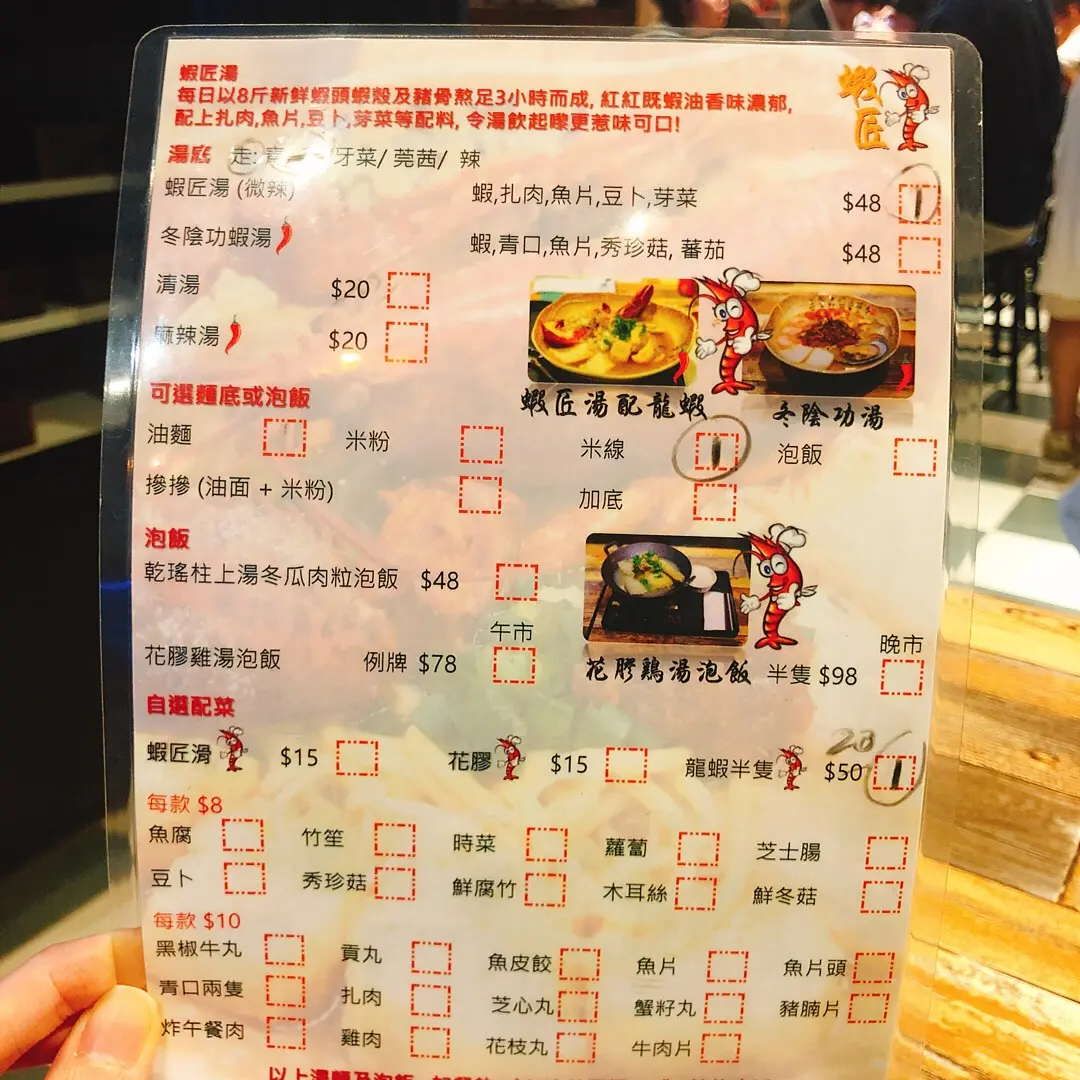 蝦匠湯
每日以8斤新鮮蝦頭蝦殼及豬骨熬足3小時而成, 紅紅既蝦油香味濃郁,
配上扎肉,魚片,豆卜,芽菜等配料, 令湯飲起嚟更惹味可口!
蝦匠
湯底 走: 牙菜/ 莞茜/ 辣
蝦匠湯 (微辣) 蝦,扎肉,魚片,豆卜,芽菜 $48 1
冬陰功蝦湯 蝦,青口,魚片,秀珍菇, 蕃茄 $48
清湯 $20
麻辣湯 $20
蝦匠湯配龍蝦 冬陰功湯
可選麵底或泡飯
油麵 米粉 米線 1 泡飯
摻摻 (油面 + 米粉) 加底
泡飯
乾瑤柱上湯冬瓜肉粒泡飯 $48
午市 晚市
花膠雞湯泡飯 例牌 $78 花膠鷄湯泡飯 半隻 $98
自選配菜
蝦匠滑 $15 花膠 $15 龍蝦半隻 $50 1
每款 $8
魚腐 竹笙 時菜 蘿蔔 芝士腸
豆卜 秀珍菇 鮮腐竹 木耳絲 鮮冬菇
每款 $10
黑椒牛丸 貢丸 魚皮餃 魚片 魚片頭
青口兩隻 扎肉 芝心丸 蟹籽丸 豬腩片
炸午餐肉 雞肉 花枝丸 牛肉片